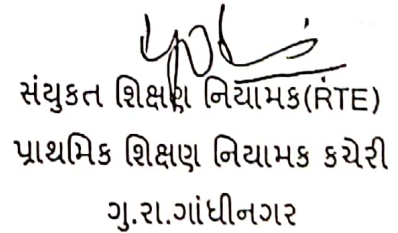 સંયુકત શિક્ષણ નિયામક(RTE)
પ્રાથમિક શિક્ષણ નિયામક કચેરી
ગુ.રા.ગાંધીનગર